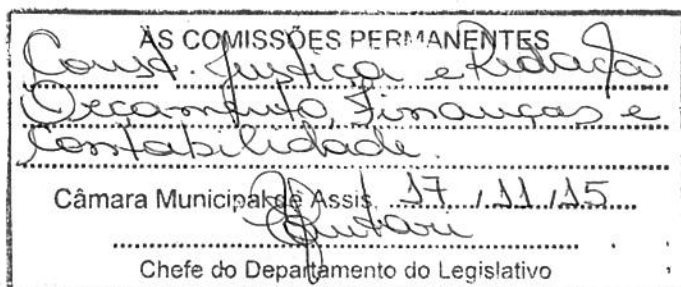 ÀS COMISSÕES PERMANENTES
Const. Justiça e Redação
Orçamento, Finanças e
Contabilidade.
Câmara Municipal de Assis, 17 / 11 / 15
Chefe do Departamento do Legislativo